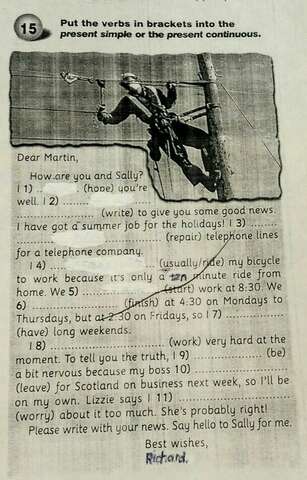 15 Put the verbs in brackets into the
present simple or the present continuous.
Dear Martin,
How are you and Sally?
I 1) .................. (hope) you're
well. I 2) ..................
.................. (write) to give you some good news.
I have got a summer job for the holidays! I 3) ........
.................. (repair) telephone lines
for a telephone company.
I 4) .................. (usually/ride) my bicycle
to work because it's only a ten minute ride from
home. We 5) .................. (start) work at 8:30. We
6) .................. (finish) at 4:30 on Mondays to
Thursdays, but at 2.30 on Fridays, so I 7) ..................
(have) long weekends.
I 8) .................. (work) very hard at the
moment. To tell you the truth, I 9) .................. (be)
a bit nervous because my boss 10) ..................
(leave) for Scotland on business next week, so I'll be
on my own. Lizzie says I 11) ..................
(worry) about it too much. She's probably right!
Please write with your news. Say hello to Sally for me.
Best wishes,
Richard.